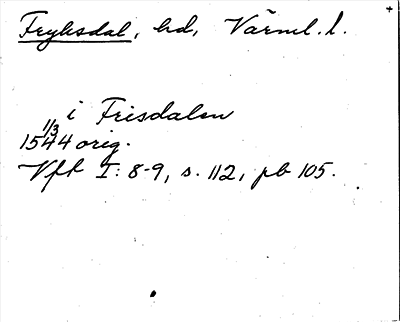 Fryksdal, hd, Värml. l.
i Frisdalen
1544 1/3 orig.
Vft I: 8-9, s. 112, pb 105.